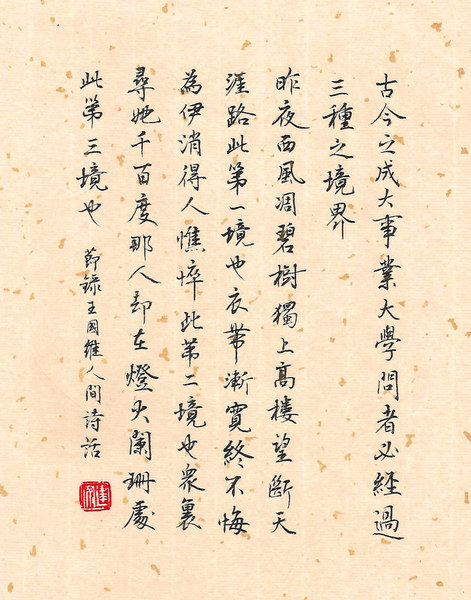 古今之成大事業大學問者必經過
三種之境界
昨夜西風凋碧樹獨上高樓望斷天
涯路此第一境也衣帶漸寬終不悔
為伊消得人憔悴此第二境也衆裏
尋她千百度那人卻在燈火闌珊處
此第三境也
節錄王國維人間詩話